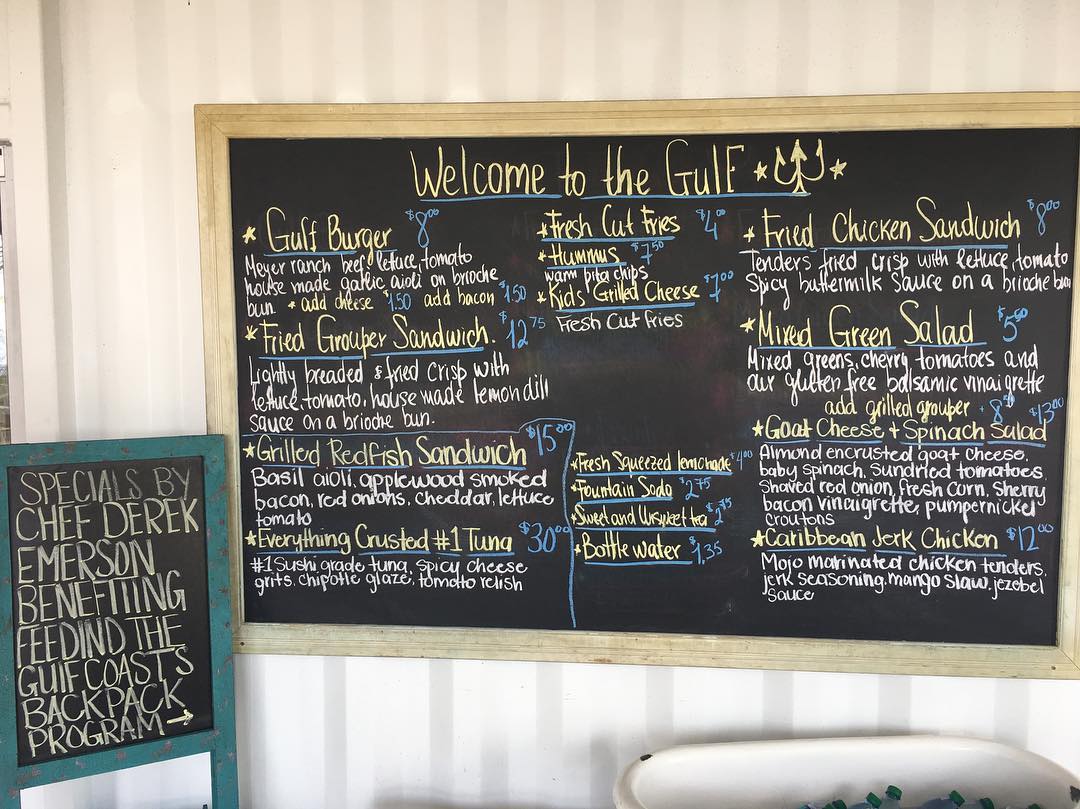 Welcome to the Gulf
* Gulf Burger $8.00
Meyer ranch beef, lettuce, tomato
house made garlic aioli on brioche
bun. * add cheese $1.50 add bacon $1.50
* Fried Grouper Sandwich. $12.75
Lightly breaded & fried crisp with
lettuce, tomato, house made lemon dill
sauce on a brioche bun.
* Grilled Redfish Sandwich $15.00
Basil aioli, applewood smoked
bacon, red onions, cheddar, lettuce
tomato
* Everything Crusted #1 Tuna $30.00
#1 Sushi grade tuna, spicy cheese
grits, chipotle glaze, tomato relish
* Fresh Cut Fries $4.00
* Hummus $7.50
warm pita chips
* Kids' Grilled Cheese $7.00
Fresh Cut fries
* Fresh Squeezed lemonade $4.00
* Fountain Soda $2.75
* Sweet and Unsweet tea $2
* Bottle water $1.35
* Fried Chicken Sandwich $8.00
Tenders fried crisp with lettuce, tomato
Spicy buttermilk sauce on a brioche bun
* Mixed Green Salad $5.50
Mixed greens, cherry tomatoes and
our gluten free balsamic vinaigrette
add grilled grouper + 8.50
* Goat Cheese + Spinach Salad $13.00
Almond encrusted goat cheese,
baby spinach, sundried tomatoes,
shaved red onion, fresh corn, sherry
bacon vinaigrette, pumpernickel
croutons
* Caribbean Jerk Chicken $12.00
Mojo marinated chicken tenders,
jerk seasoning, mango slaw, jezebel
sauce
SPECIALS BY
CHEF DEREK
EMERSON
BENEFITING
FEEDIND THE
GULF COAST'S
BACKPACK
PROGRAM →